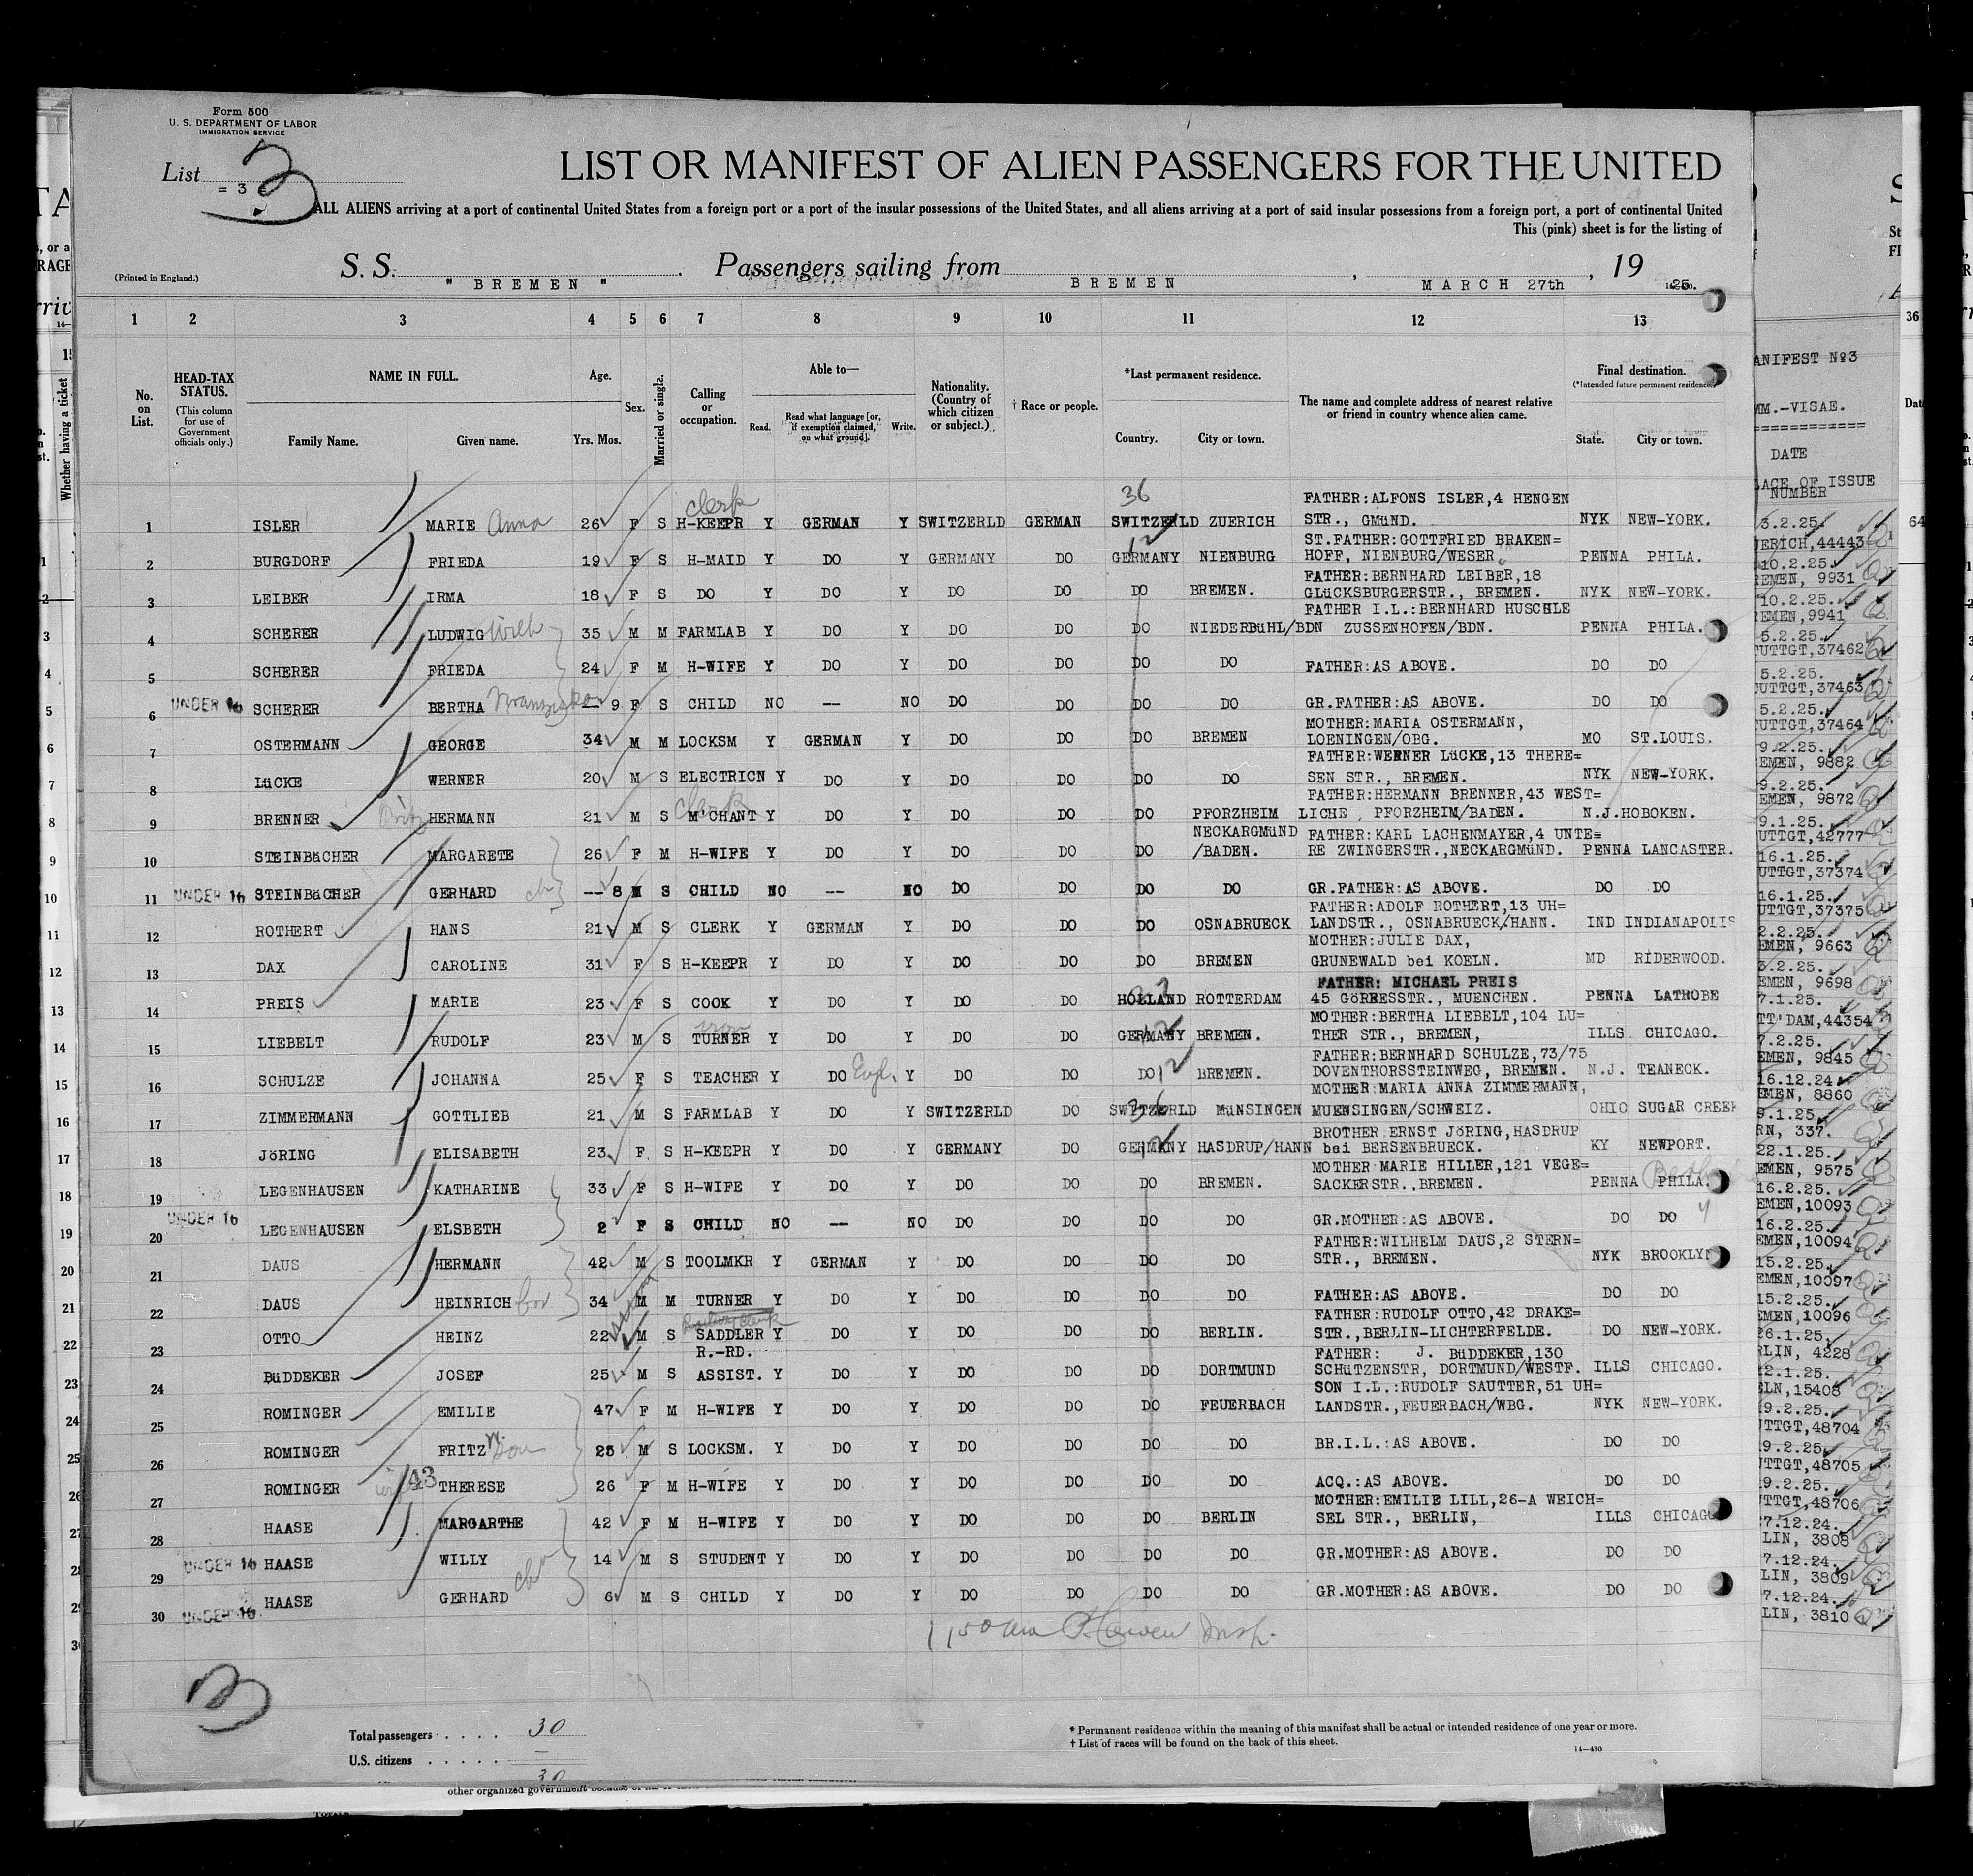 Form 500
U. S. DEPARTMENT OF LABOR
IMMIGRATION SERVICE
List = 3 = 3
LIST OR MANIFEST OF ALIEN PASSENGERS FOR THE UNITED
ALL ALIENS arriving at a port of continental United States from a foreign port or a port of the insular possessions of the United States, and all aliens arriving at a port of said insular possessions from a foreign port, a port of continental United
This (pink) sheet is for the listing of
(Printed in England.) S. S. " BREMEN " Passengers sailing from BREMEN , MARCH 27th , 19 25.
1 2 3 4 5 6 7 8 9 10 11 12 13
No. on List. HEAD-TAX STATUS. (This column for use of Government officials only.) NAME IN FULL. Family Name. Given name. Age. Yrs. Mos. Sex. Married or single. Calling or occupation. Able to— Read. Read what language [or, if exemption claimed, on what ground]. Write. Nationality. (Country of which citizen or subject.) † Race or people. *Last permanent residence. Country. City or town. The name and complete address of nearest relative or friend in country whence alien came. Final destination. (*Intended future permanent residence.) State. City or town.
1 ISLER MARIE Anna 26 F S H-KEEPR clerk Y GERMAN Y SWITZERLD GERMAN 36 SWITZERLD ZUERICH FATHER:ALFONS ISLER,4 HENGEN STR., GMüND. NYK NEW-YORK.
2 BURGDORF FRIEDA 19 F S H-MAID Y DO Y GERMANY DO 12 GERMANY NIENBURG ST.FATHER:GOTTFRIED BRAKEN= HOFF, NIENBURG/WESER PENNA PHILA.
3 LEIBER IRMA 18 F S DO Y DO Y DO DO DO BREMEN. FATHER:BERNHARD LEIBER,18 GLüCKSBURGERSTR., BREMEN. NYK NEW-YORK.
4 SCHERER LUDWIG Wilh 35 M M FARMLAB Y DO Y DO DO DO NIEDERBüHL/BDN FATHER I.L.:BERNHARD HUSCHLE ZUSSENHOFEN/BDN. PENNA PHILA.
5 SCHERER FRIEDA 24 F M H-WIFE Y DO Y DO DO DO DO FATHER:AS ABOVE. DO DO
6 UNDER 16 SCHERER BERTHA Franziska -- 9 F S CHILD NO -- NO DO DO DO DO GR.FATHER:AS ABOVE. DO DO
7 OSTERMANN GEORGE 34 M M LOCKSM Y GERMAN Y DO DO DO BREMEN MOTHER:MARIA OSTERMANN, LOENINGEN/OBG. MO ST.LOUIS.
8 LüCKE WERNER 20 M S ELECTRICN Y DO Y DO DO DO DO FATHER:WERNER LüCKE,13 THERE= SEN STR., BREMEN. NYK NEW-YORK.
9 BRENNER Fritz HERMANN 21 M S M'CHANT clerk Y DO Y DO DO DO PFORZHEIM FATHER:HERMANN BRENNER,43 WEST= LICHE , PFORZHEIM/BADEN. N.J.HOBOKEN.
10 STEINBäCHER MARGARETE 26 F M H-WIFE Y DO Y DO DO DO NECKARGMüND /BADEN. FATHER:KARL LACHENMAYER,4 UNTE= RE ZWINGERSTR.,NECKARGMüND. PENNA LANCASTER.
11 UNDER 16 STEINBäCHER GERHARD ch -- 8 M S CHILD NO -- NO DO DO DO DO GR.FATHER:AS ABOVE. DO DO
12 ROTHERT HANS 21 M S CLERK Y GERMAN Y DO DO DO OSNABRUECK FATHER:ADOLF ROTHERT,13 UH= LANDSTR., OSNABRUECK/HANN. IND INDIANAPOLIS
13 DAX CAROLINE 31 F S H-KEEPR Y DO Y DO DO DO BREMEN MOTHER:JULIE DAX, GRUNEWALD bei KOELN. MD RIDERWOOD.
14 PREIS MARIE 23 F S COOK Y DO Y DO DO HOLLAND ROTTERDAM FATHER: MICHAEL PREIS 45 GöRRESSTR., MUENCHEN. PENNA LATROBE
15 LIEBELT RUDOLF 23 M S TURNER iron Y DO Y DO DO 12 GERMANY BREMEN. MOTHER:BERTHA LIEBELT,104 LU= THER STR., BREMEN, ILLS CHICAGO.
16 SCHULZE JOHANNA 25 F S TEACHER Y DO Engl. Y DO DO DO 12 BREMEN. FATHER:BERNHARD SCHULZE,73/75 DOVENTHORSSTEINWEG, BREMEN. N.J. TEANECK.
17 ZIMMERMANN GOTTLIEB 21 M S FARMLAB Y DO Y SWITZERLD DO 36 SWITZERLD MüNSINGEN MOTHER:MARIA ANNA ZIMMERMANN, MUENSINGEN/SCHWEIZ. OHIO SUGAR CREEK
18 JöRING ELISABETH 23 F S H-KEEPR Y DO Y GERMANY DO 12 GERMANY HASDRUP/HANN BROTHER ERNST JöRING,HASDRUP bei BERSENBRUECK. KY NEWPORT.
19 LEGENHAUSEN KATHARINE 33 F S H-WIFE Y DO Y DO DO DO BREMEN. MOTHER MARIE HILLER,121 VEGE= SACKERSTR.,BREMEN. PENNA PHILA.
20 UNDER 16 LEGENHAUSEN ELSBETH 2 F S CHILD NO -- NO DO DO DO DO GR.MOTHER:AS ABOVE. DO DO
21 DAUS HERMANN 42 M S TOOLMKR Y GERMAN Y DO DO DO DO FATHER:WILHELM DAUS,2 STERN= STR., BREMEN. NYK BROOKLYN
22 DAUS HEINRICH bro 34 M M TURNER Y DO Y DO DO DO DO FATHER:AS ABOVE. DO DO
23 OTTO HEINZ 22 M S SADDLER Y DO Y DO DO DO BERLIN. FATHER:RUDOLF OTTO,42 DRAKE= STR.,BERLIN-LICHTERFELDE. DO NEW-YORK.
24 BüDDEKER JOSEF 25 M S R.-RD. ASSIST. Y DO Y DO DO DO DORTMUND FATHER: J. BüDDEKER,130 SCHüTZENSTR, DORTMUND/WESTF. ILLS CHICAGO.
25 ROMINGER EMILIE 47 F M H-WIFE Y DO Y DO DO DO FEUERBACH SON I.L.:RUDOLF SAUTTER,51 UH= LANDSTR.,FEUERBACH/WBG. NYK NEW-YORK.
26 ROMINGER FRITZ son 25 M S LOCKSM. Y DO Y DO DO DO DO BR.I.L.:AS ABOVE. DO DO
27 ROMINGER 43 THERESE 26 F M H-WIFE Y DO Y DO DO DO DO ACQ.:AS ABOVE. DO DO
28 HAASE MARGARTHE 42 F M H-WIFE Y DO Y DO DO DO BERLIN MOTHER:EMILIE LILL,26-A WEICH= SEL STR., BERLIN, ILLS CHICAGO
29 UNDER 16 HAASE WILLY 14 M S STUDENT Y DO Y DO DO DO DO GR.MOTHER:AS ABOVE. DO DO
30 UNDER 16 HAASE GERHARD chn 6 M S CHILD Y DO Y DO DO DO DO GR.MOTHER:AS ABOVE. DO DO
Insp.
3
Total passengers . . . . 30
U.S. citizens . . . . . —
30
* Permanent residence within the meaning of this manifest shall be actual or intended residence of one year or more.
† List of races will be found on the back of this sheet.
14—430
ANIFEST №3
MM.-VISAE.
DATE
LACE OF ISSUE
NUMBER
3.2.25.
UERICH,44443
10.2.25.
REMEN, 9931
10.2.25.
REMEN,9941
5.2.25.
TUTTGT,37462
5.2.25.
TUTTGT,37463
5.2.25.
TUTTGT,37464
9.2.25.
EMEN, 9882
9.2.25.
EMEN, 9872
9.1.25.
UTTGT,42777
16.1.25.
UTTGT,37374
16.1.25.
UTTGT,37375
2.2.25.
EMEN, 9663
3.2.25.
EMEN, 9698
7.1.25.
TT'DAM,44354
7.2.25.
EMEN, 9845
16.12.24
EMEN, 8860
9.1.25.
RN, 337.
22.1.25.
EMEN, 9575
16.2.25.
EMEN,10093
16.2.25.
EMEN,10094
15.2.25.
EMEN,10097
15.2.25.
EMEN,10096
26.1.25.
RLIN, 4228
2.1.25.
ELN,15408
9.2.25.
UTTGT,48704
9.2.25.
UTTGT,48705
9.2.25.
UTTGT,48706
27.12.24.
LIN, 3808
7.12.24.
LIN, 3809
7.12.24.
LIN, 3810